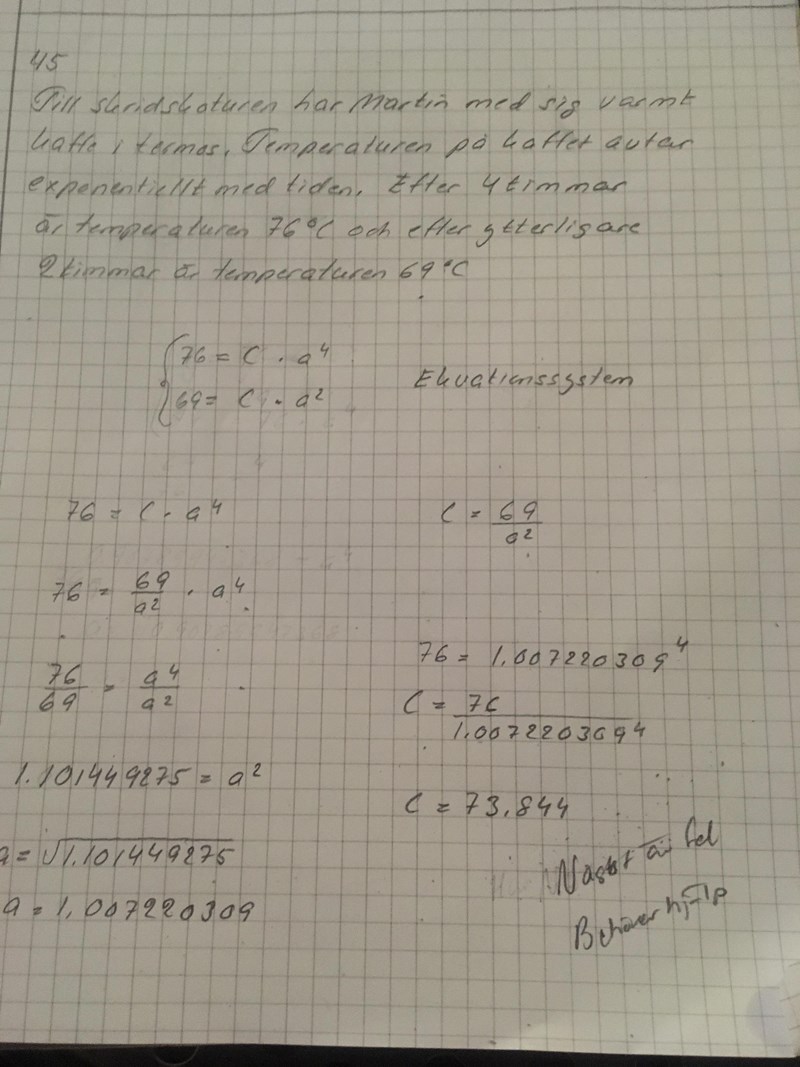 45
Till skridskoturen har Martin med sig varmt
kaffe i termos. Temperaturen på kaffet avtar
exponentiellt med tiden. Efter 4 timmar
är temperaturen 76°C och efter ytterligare
2 timmar är temperaturen 69°C
76 = C · a⁴
69 = C · a²
Ekvationssystem
76 = C · a⁴
C = 69/a²
76 = 69/a² · a⁴
76 = 1,007220309⁴
76/69 = a⁴/a²
C = 76/1,007220309⁴
1.101449275 = a²
C = 73,844
a = √1,101449275
a = 1,007220309
Något är fel
Behöver hjälp